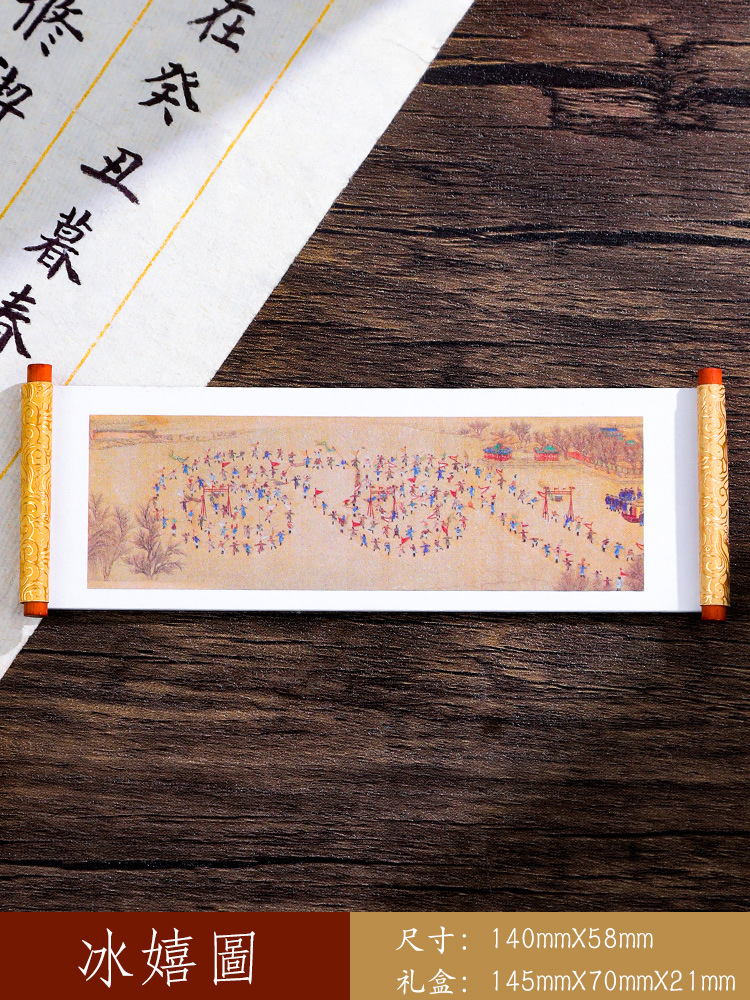 在癸
丑暮春
修禊
冰嬉圖
尺寸: 140mmX58mm
礼盒: 145mmX70mmX21mm